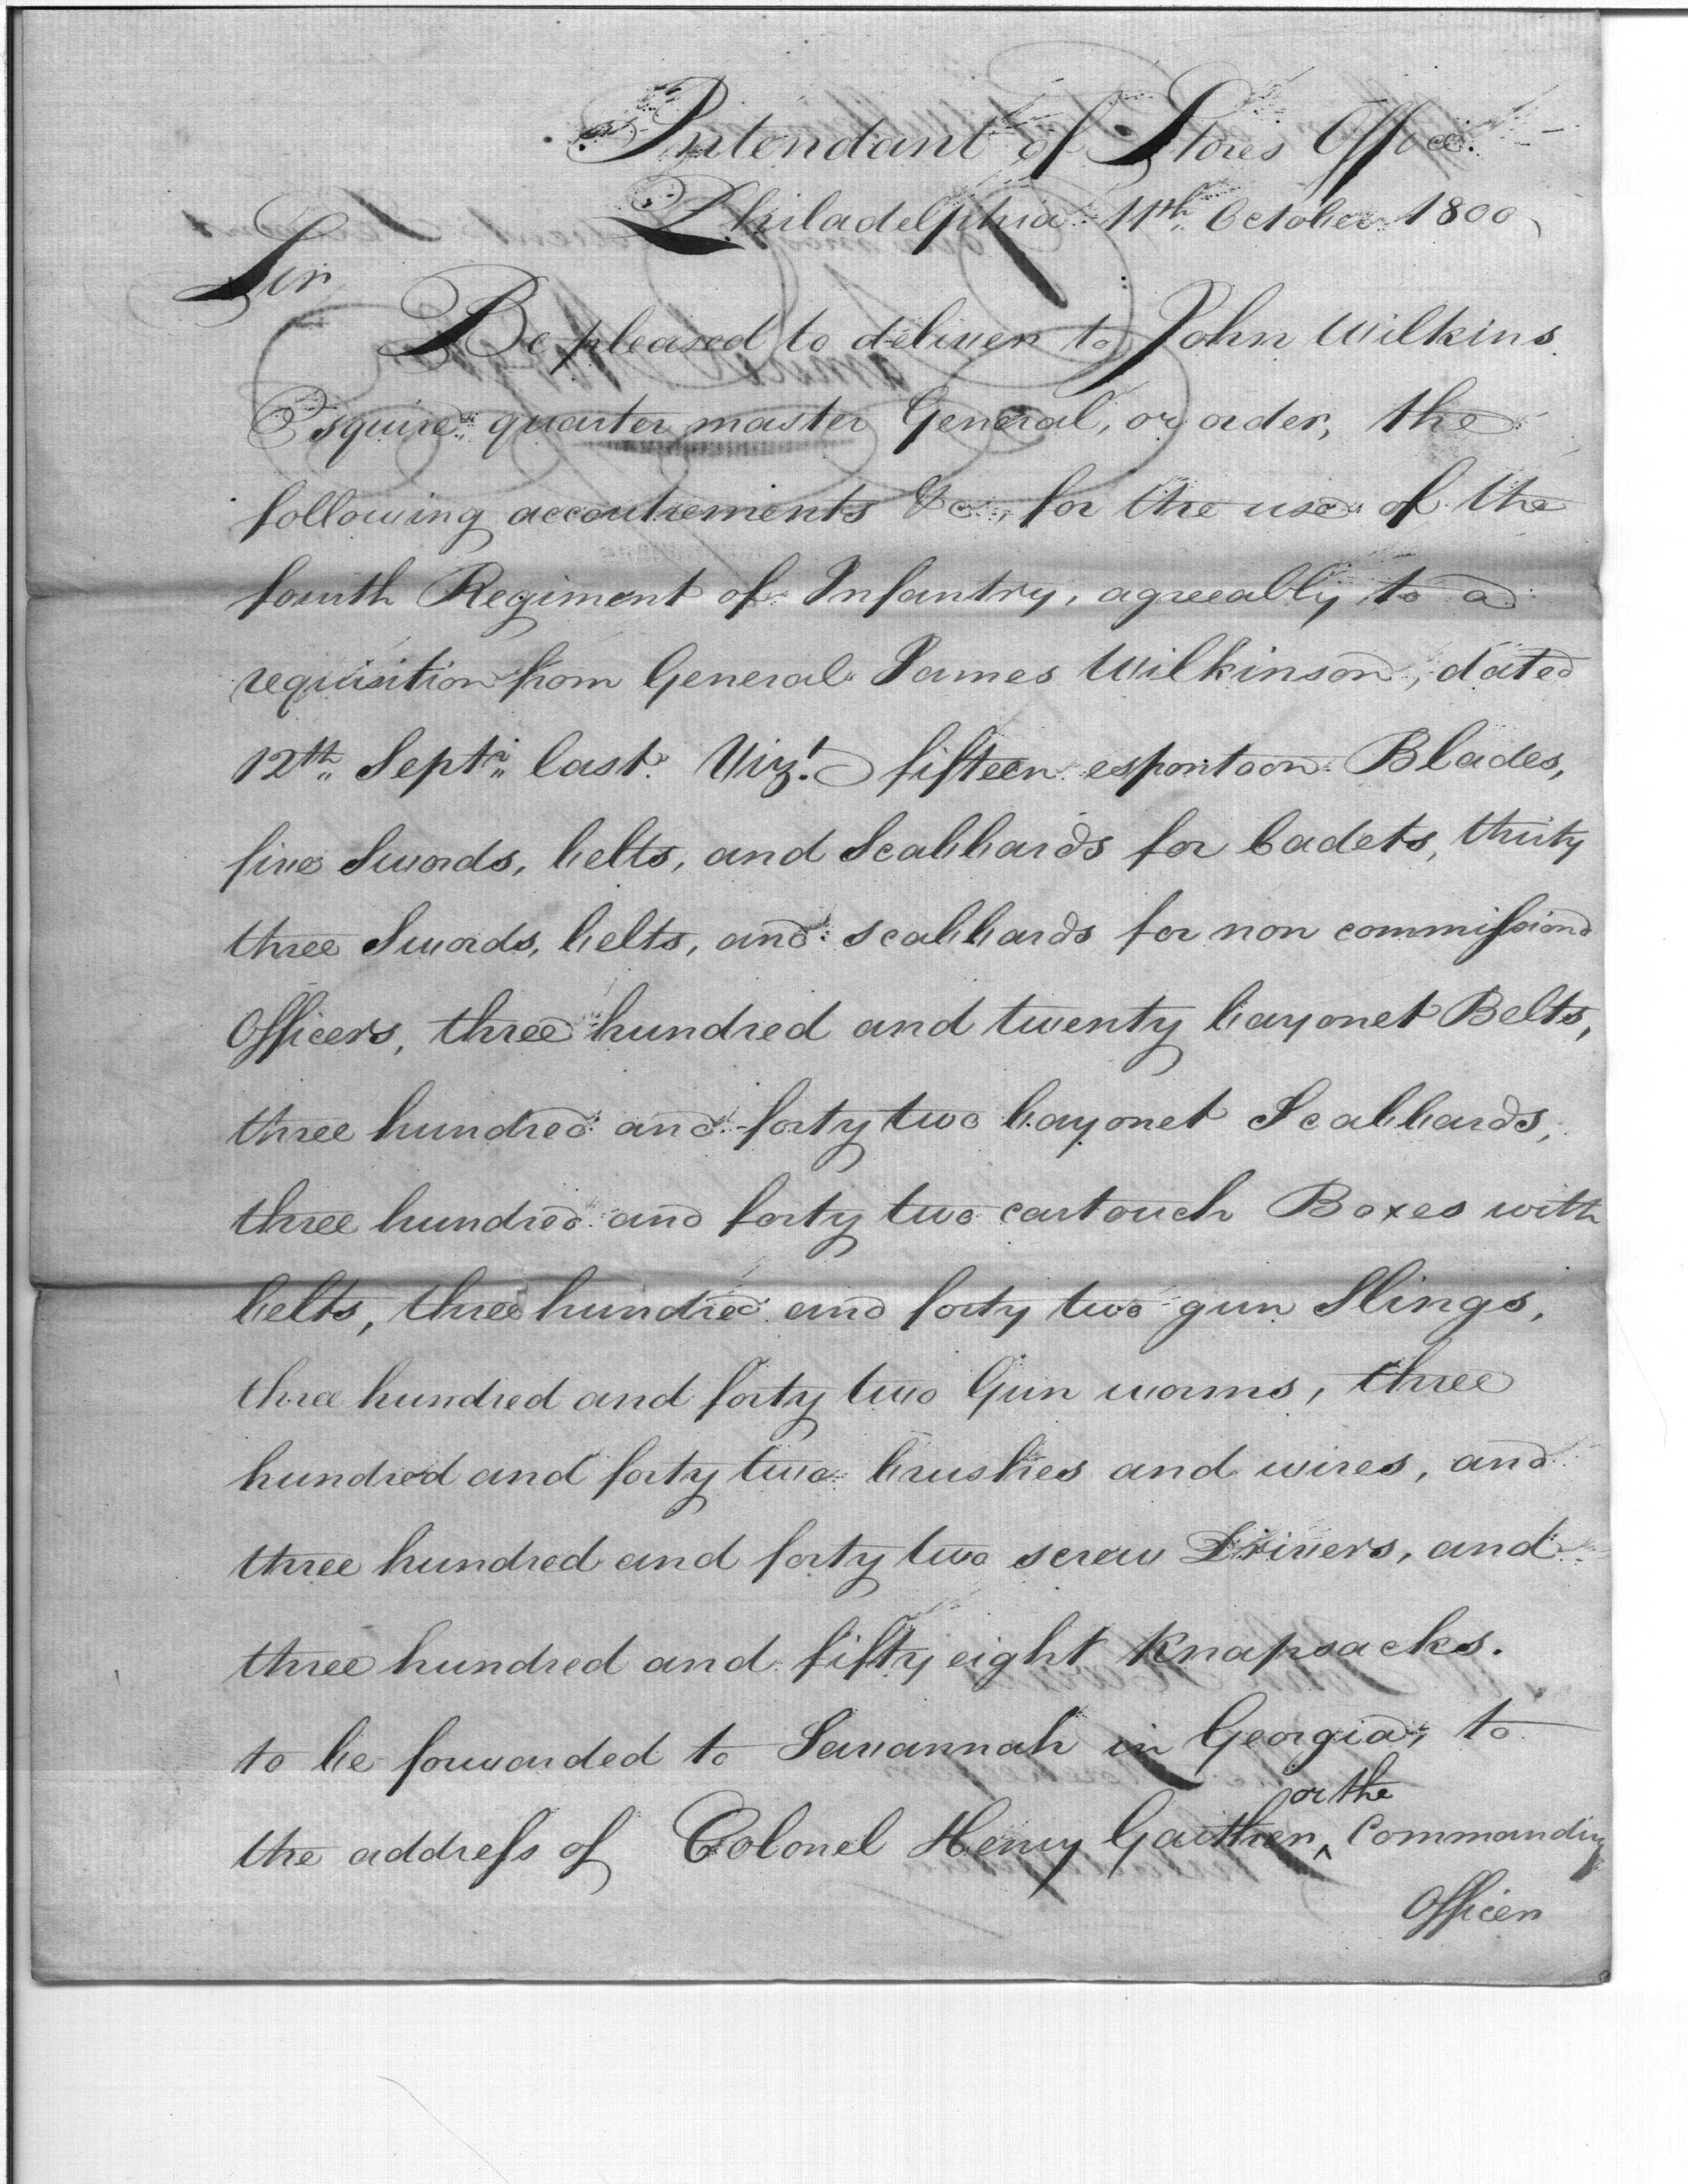 Intendant of Stores Office.
Philadelphia 11th October 1800
Sir
Be pleased to deliver to John Wilkins
Esquire quarter master General, or order, the
following accoutrements &c., for the use of the
fourth Regiment of Infantry, agreeably to a
requisition from General James Wilkinson, dated
12th Septr. last. Vizt. fifteen espontoon Blades,
five Swords, belts, and Scabbards for Cadets, thirty
three Swords, belts, and scabbards for non commissiond
Officers, three hundred and twenty bayonet Belts,
three hundred and forty two bayonet Scabbards,
three hundred and forty two cartouch Boxes with
belts, three hundred and forty two gun Slings,
three hundred and forty two Gun worms, three
hundred and forty two brushes and wires, and
three hundred and forty two screw Drivers, and
three hundred and fifty eight Knapsacks.
to be forwarded to Savannah in Georgia, to
or the
the address of Colonel Henry Gaither, ^ Commanding
Officer